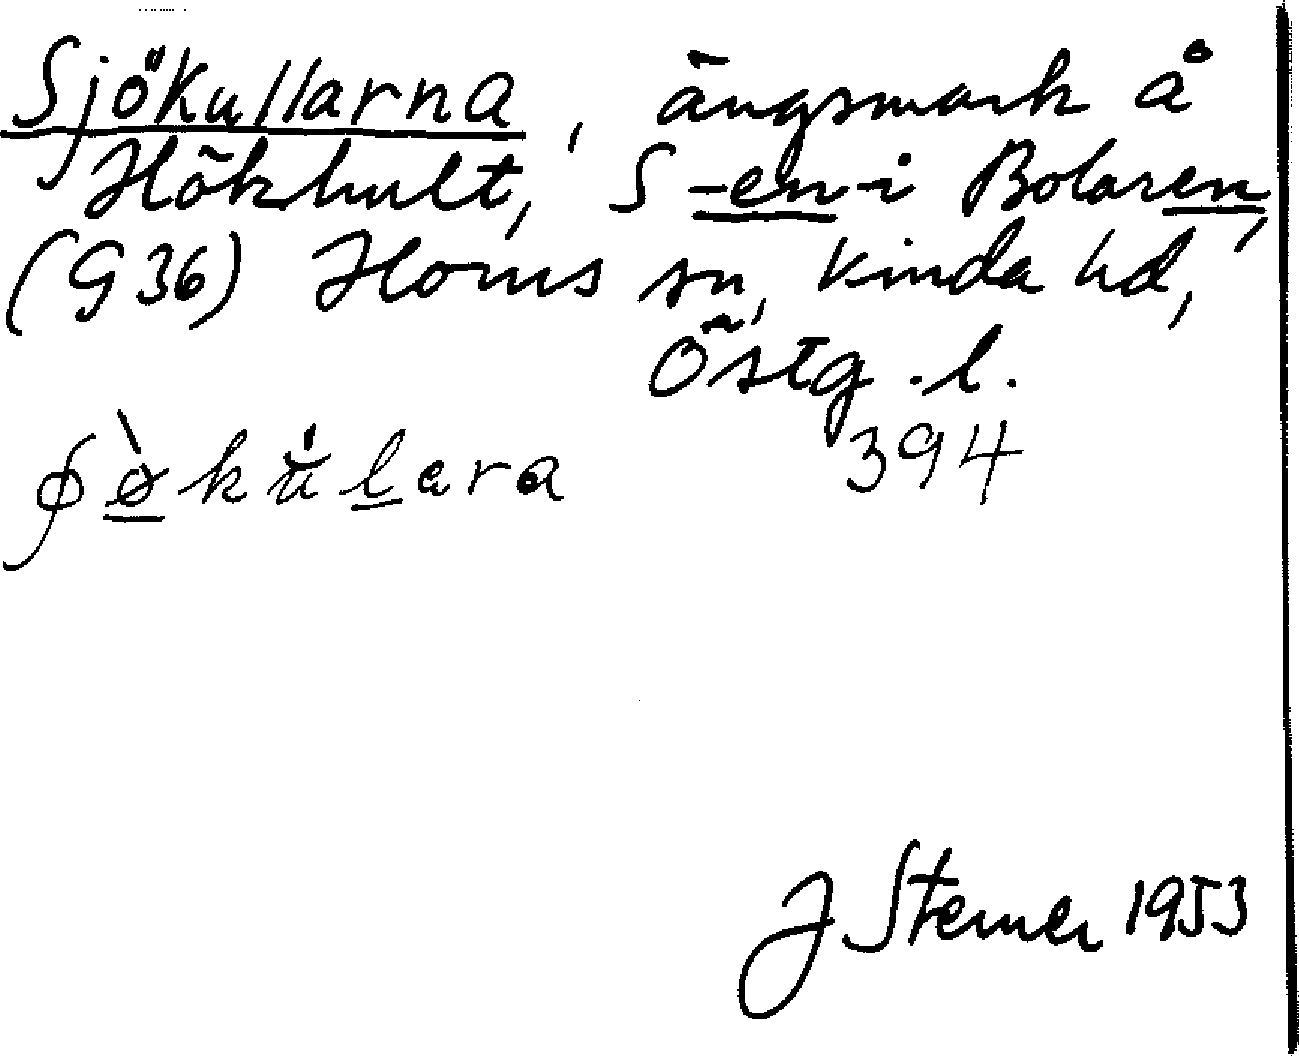 Sjökullarna, ängsmark å
Hökhult, S -en-i Bolaren,
(G36) Horns sn, Kinda hd,
Östg.l.
394
J Sterner 1953